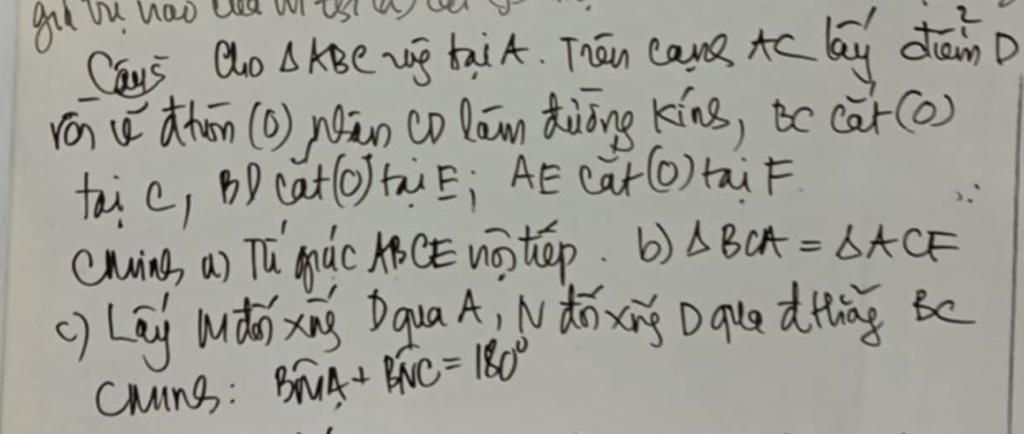 giá trị nào của m
Câu5 Cho ΔABC vg tại A. Trên cạnh AC lấy điểm D
rồi vẽ đtròn (O) nhận CD làm đường kính, BC cắt (O)
tại C, BD cắt (O) tại E; AE cắt (O) tại F
Chứng a) Tứ giác ABCE nội tiếp. b) ΔBCA = ΔACF
c) Lấy M đối xứng D qua A, N đối xứng D qua đthẳng BC
Chứng: BMA + BNC = 180°